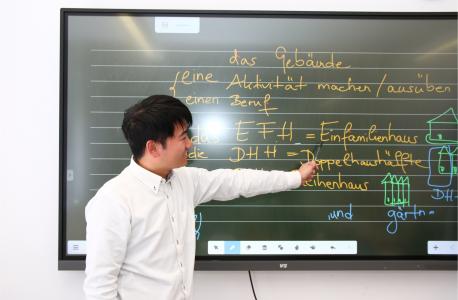 das Gebäude
eine Aktivität machen/ausüben
einen Beruf
das EFH = Einfamilienhaus
die DHH = Doppelhaushälfte
und gärtn-
DH-